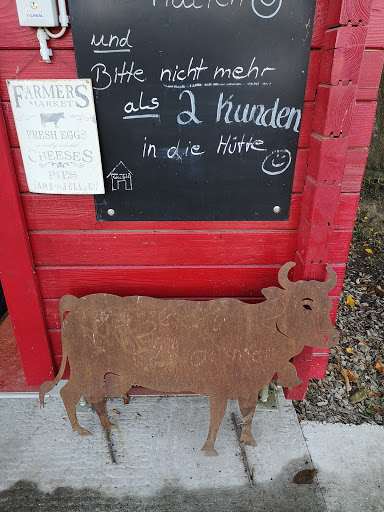 halten
und
Bitte nicht mehr
als 2 Kunden
in die Hütte
FARMERS
MARKET
FRESH EGGS
CHEESES
PIES
JAMS & JELLIES